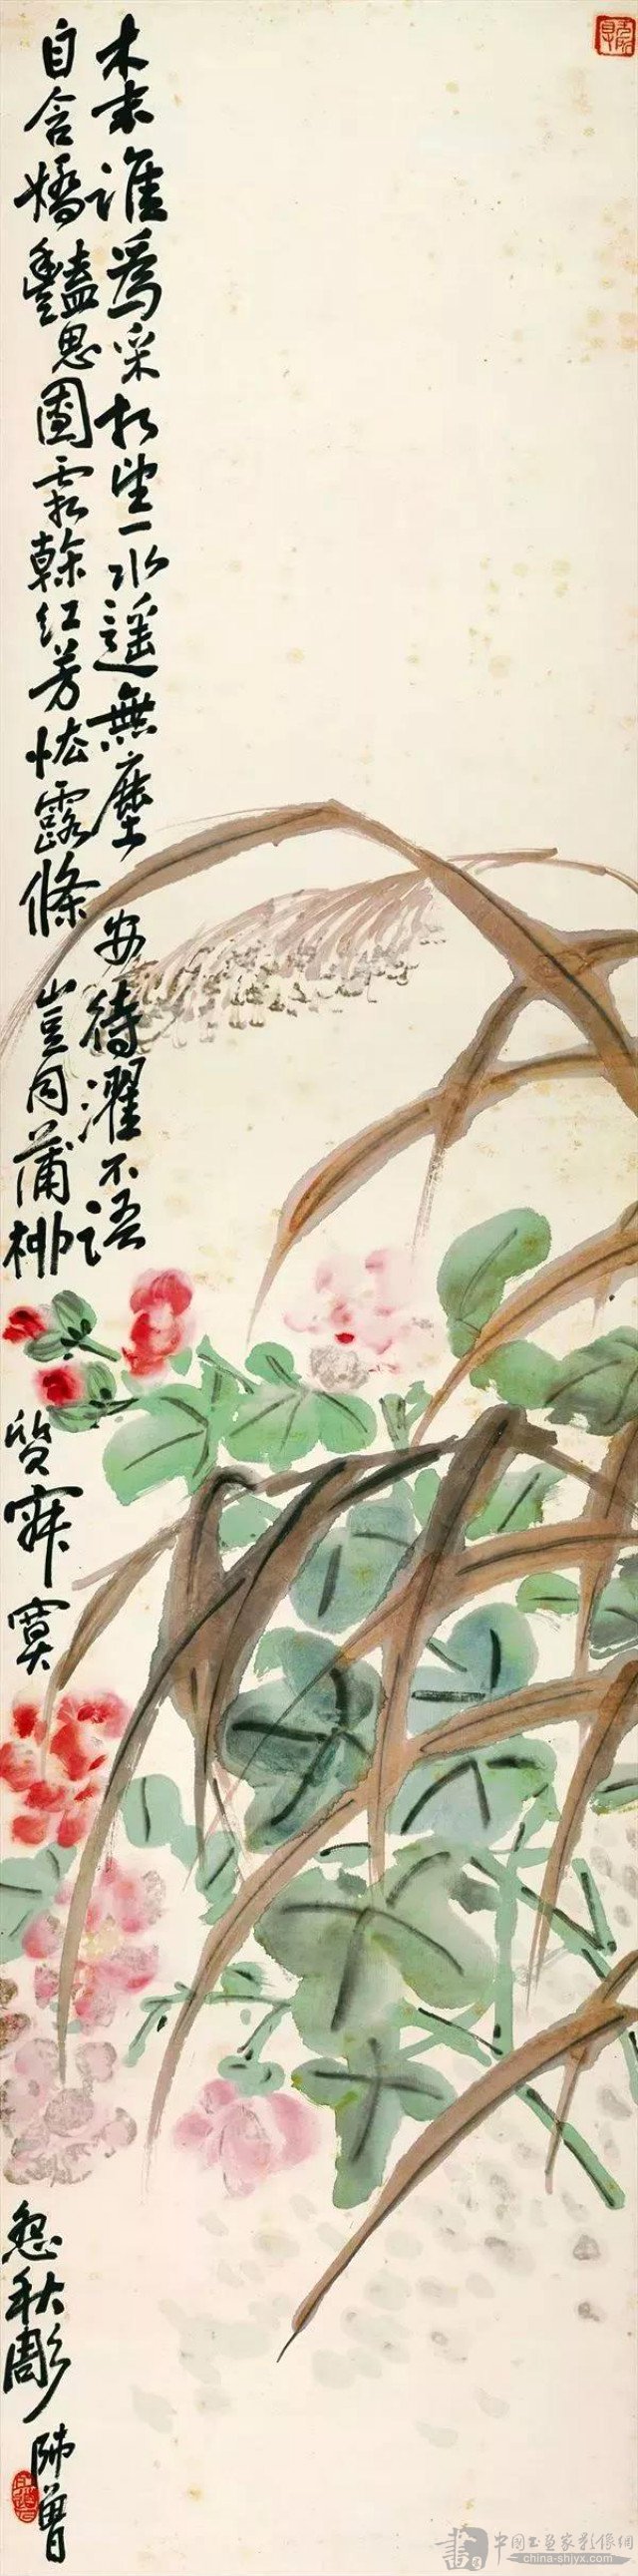 木末誰為采相望一水遥無塵安待濯不語
自含嬌豔思圍霜榦紅芳怯露條豈同蒲柳質寂寞怨秋彫
師曾
中国书画家影像网
china-shjyx.com